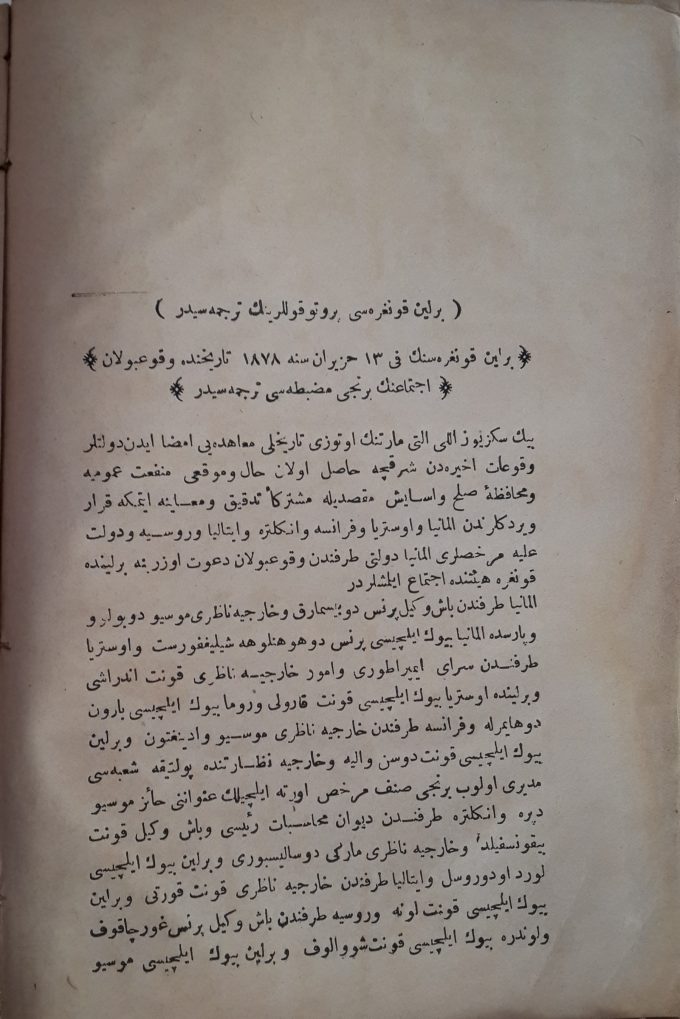 ( برلین قونغره‌سی پروتوقوللرینك ترجمه‌سیدر )
برلین قونغره‌سنك فی ١٣ حزیران سنه ١٨٧٨ تاریخنده وقوعبولان
اجتماعنك برنجی مضبطه‌سی ترجمه‌سیدر
بیك سكزیوز اللی التی مارتنك اوتوزی تاریخلی معاهده‌یی امضا ایدن دولتلر
وقوعات اخیره‌دن شرقچه حاصل اولان حال وموقعی منفعت عمومیه
ومحافظهٔ صلح واسایش مقصدیله مشتركاً تدقیق ومعاینه ایتمكه قرار
ویردكلرندن المانیا واوستریا وفرانسه وانكلتره وایتالیا وروسیه ودولت
علیه مرخصلری المانیا دولتی طرفندن وقوعبولان دعوت اوزرینه برلینده
قونغره هیئتنده اجتماع ایلمشلردر
المانیا طرفندن باش وكیل پرنس دوبیسمارق وخارجیه ناظری موسیو دوبولو و
وپارسده المانیا بیوك ایلچیسی پرنس دوهوهنلوهه شیلیغفورست واوستریا
طرفندن سرای ایمپراطوری وامور خارجیسه ناظری قونت اندراشی
وبرلینده اوستریا بیوك ایلچیسی قونت قارولی وروما بیوك ایلچیسی بارون
دوهایمرله وفرانسه طرفندن خارجیه ناظری موسیو وادینغتون وبرلین
بیوك ایلچیسی قونت دوسن والیه وخارجیه نظارتنده پولتیقه شعبه‌سی
مدیری اولوب برنجی صنف مرخص اورته ایلچیلك عنواننی حائز موسیو
دپره وانكلتره طرفندن دیوان محاسبات رئیسی وباش وكیل قونت
بیقونسفیلد وخارجیه ناظری ماركی دوسالیسبوری وبرلین بیوك ایلچیسی
لورد اودوروسل وایتالیا طرفندن خارجیه ناظری قونت قورتی وبرلین
بیوك ایلچیسی قونت لونه وروسیه طرفندن باش وكیل پرنس غورچاقوف
ولوندره بیوك ایلچیسی قونت شووالوف وبرلین بیوك ایلچیسی موسیو